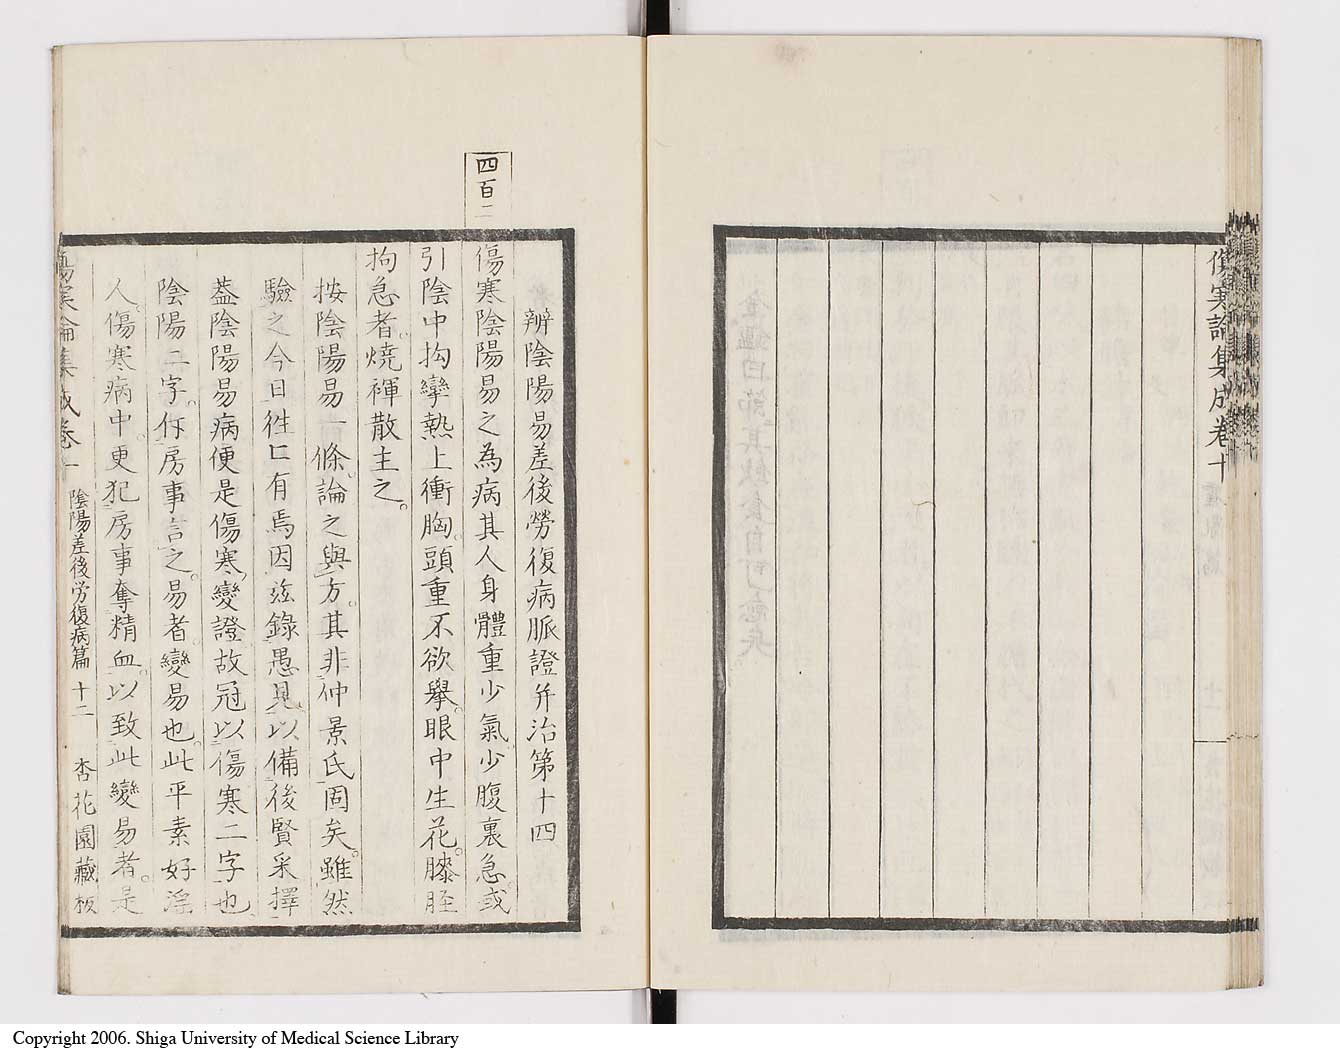 傷寒論集成卷十
四百二
辨陰陽易差後勞復病脈證并治第十四
傷寒陰陽易之為病其人身體重少氣少腹裏急或
引陰中拘攣熱上衝胸。頭重不欲擧。眼中生花。膝脛
拘急者。燒褌散主之。
按陰陽易一條。論之與方。其非仲景氏固矣。雖然
驗之今日徃〻有焉因玆錄愚見以備後賢采擇
葢陰陽易病便是傷寒變證故冠以傷寒二字也
陰陽二字。仵房事言之。易者。變易也。此平素好淫
人。傷寒病中。更犯房事奪精血。以致此變易者。是
傷寒論集成卷十
陰陽差後勞復病篇
十二
杏花園藏板
Copyright 2006. Shiga University of Medical Science Library